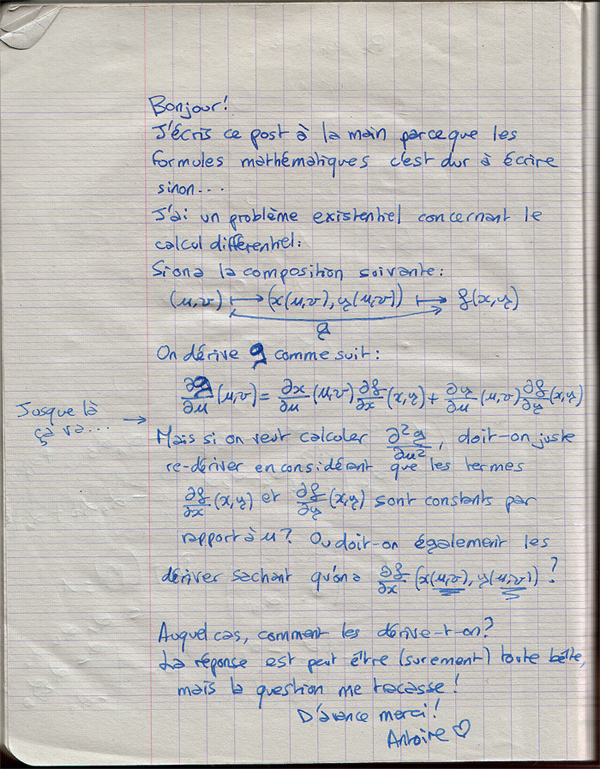 Bonjour!
J'écris ce post à la main parceque les
formules mathématiques c'est dur à écrire
sinon...
J'ai un problème existentiel concernant le
calcul différentiel:
Si on a la composition suivante:
(u,v) ⟼ (x(u,v), y(u,v)) ⟼ f(x,y)
g
On dérive g comme suit:
∂g/∂u (u,v) = ∂x/∂u (u,v) ∂f/∂x (x,y) + ∂y/∂u (u,v) ∂f/∂y (x,y)
Jusque là
ça va... →
Mais si on veut calculer ∂²g/∂u², doit-on juste
re-dériver en considérant que les termes
∂f/∂x (x,y) et ∂f/∂y (x,y) sont constants par
rapport à u? Ou doit-on également les
dériver sachant qu'on a ∂f/∂x (x(u,v), y(u,v))?
Auquel cas, comment les dérive-t-on?
La réponse est peut être (surement) toute bête,
mais la question me tracasse!
D'avance merci!
Antoine ♡